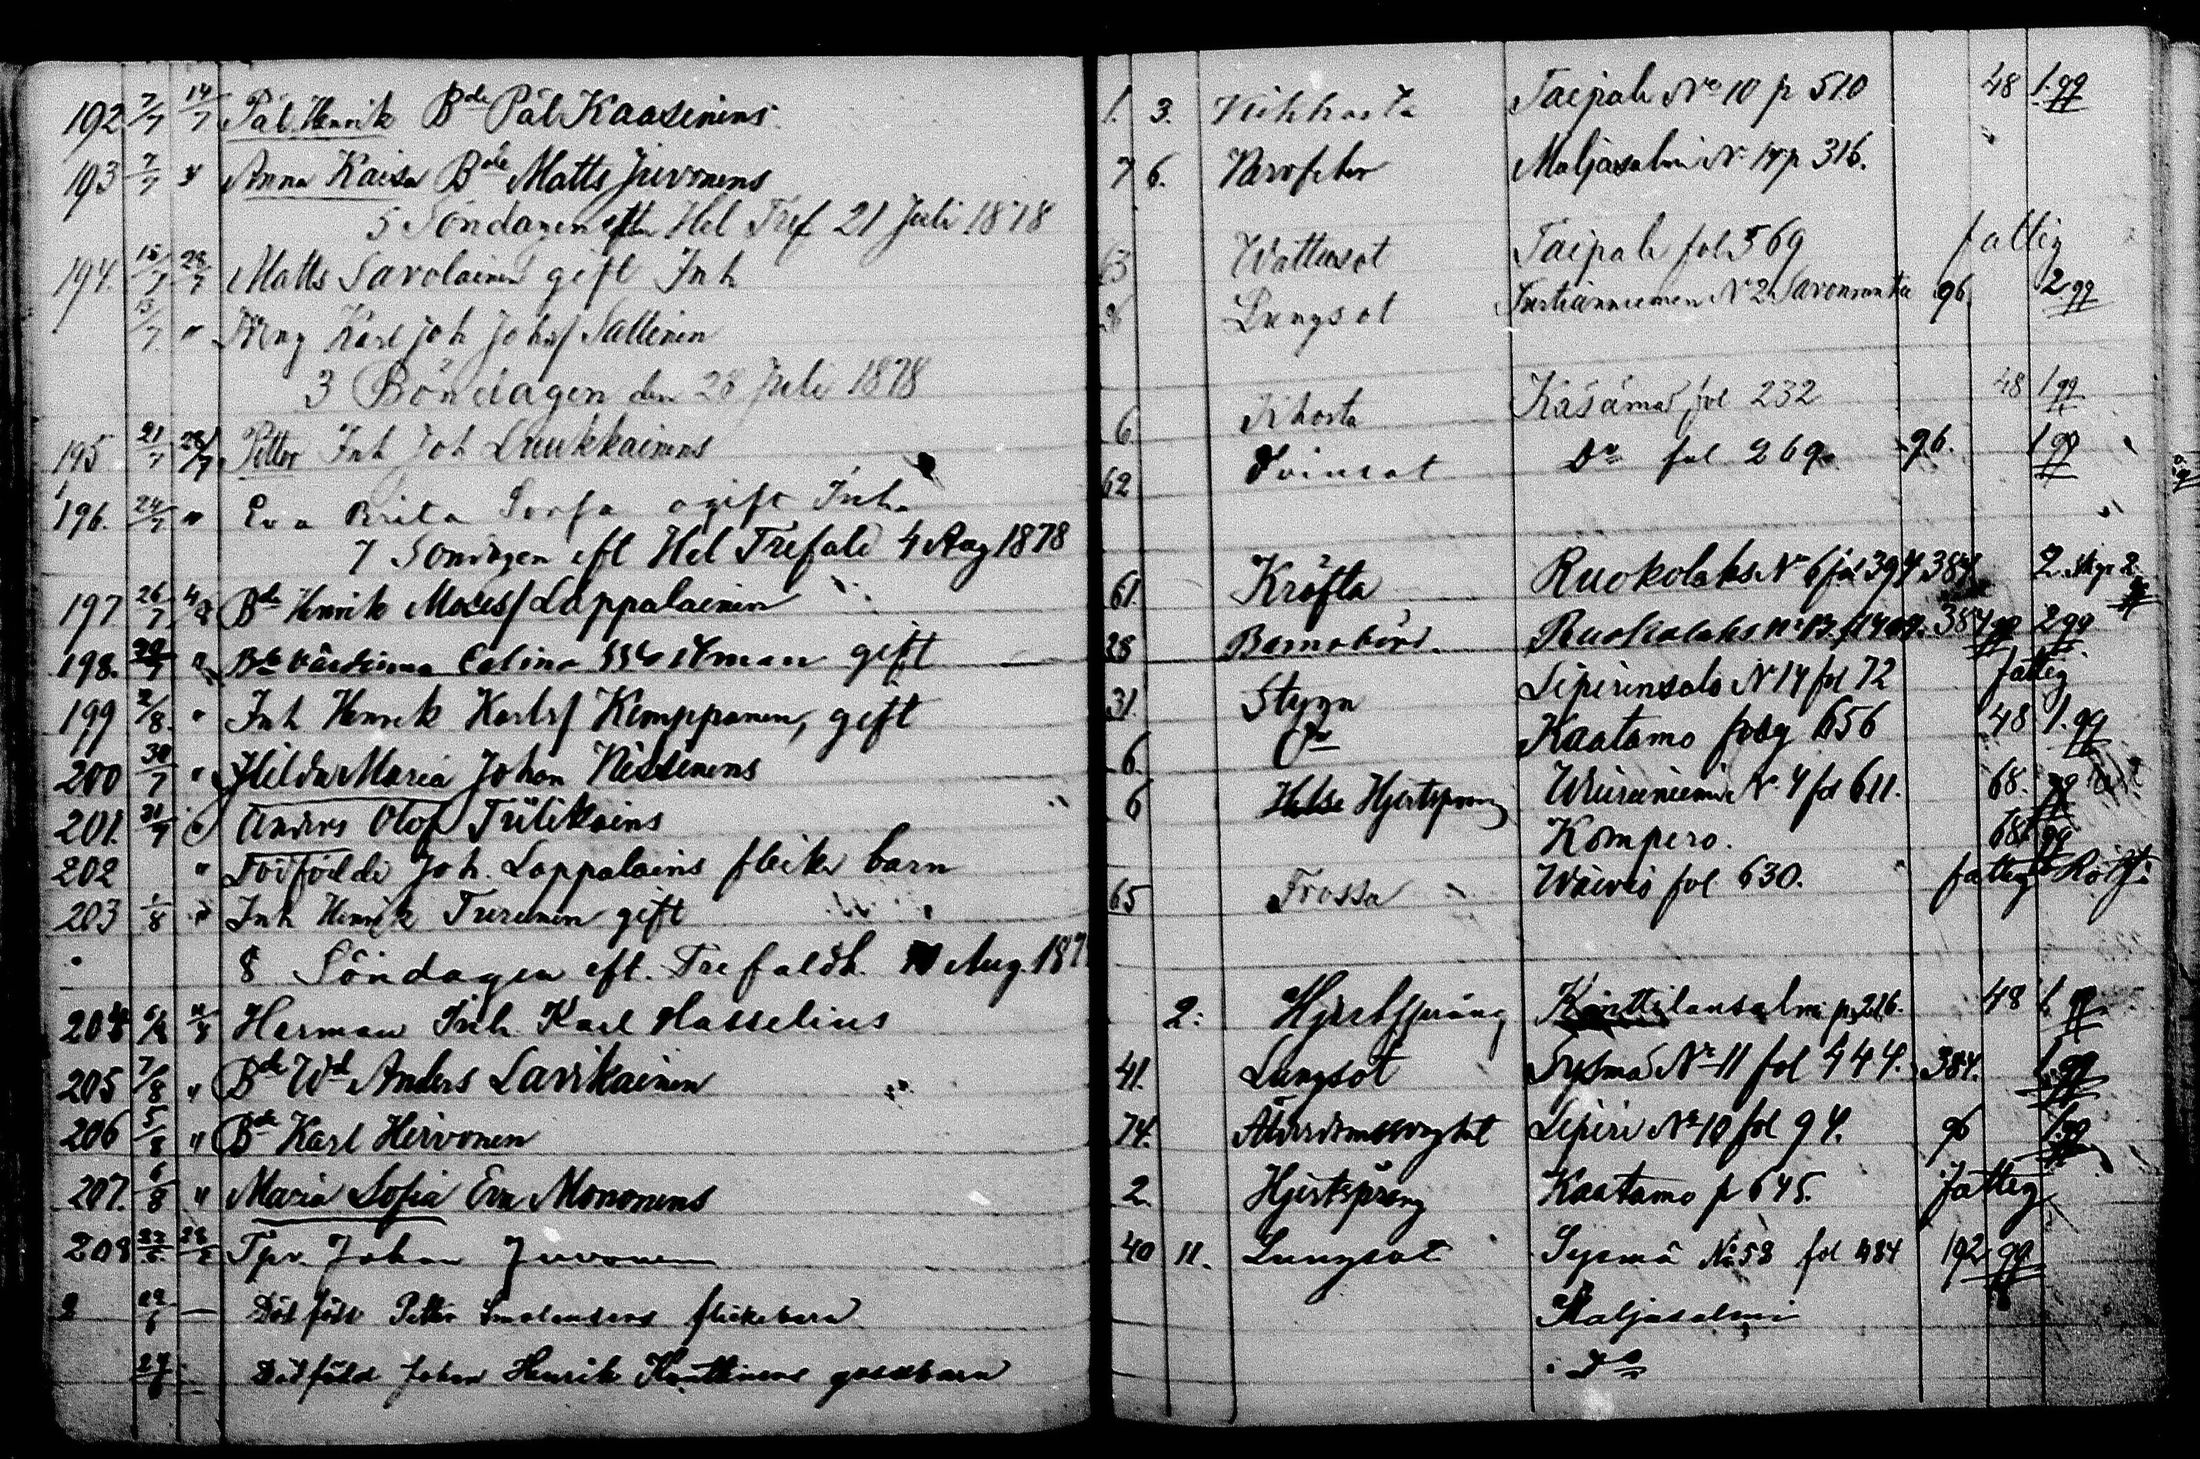 192 7/7 14/7 Pål Henrik Bde Pål Kaasinens 1. 3. Kikhosta Taipale No 10 p 510 48 1.gg
193 7/7 " Anna Kaisa Bde Matts Juvonens 7 6. Maljasalmi No 14 p 316.
5 Söndagen eft Hel Tref 21 Juli 1878
194. 15/7 28/7 Matts Savolainen gift Inh 63 Wattusot Taipale fol 569 fattig
13/7 " Karl Joh Johsf Sallinen Lungsot No 2 Savonranta 96 2 gg
3 Böndagen den 28 Juli 1878
195 21/7 28/7 Petter Inh Joh Luukkainens 6 Kikhosta Käsämä fol 232 48 1 gg
196. 24/7 " Eva Brita ogift Inh. 62 Tvinsot Do fol 269. 96. 1 gg
7 Söndagen eft Hel Trefald 4 Aug 1878
197 26/7 4/8 Bde Henrik Mosesf Lappalainen 61 Kräfta Ruokolaks No 6 fol 394 384 2
198. " gift 28 Barnsbörd. Ruokolaks No 13. 384 gg 2 gg
199 2/8. " Inh Henrik Karlsf Kemppanen, gift 31. Stygn Liperinsalo No 14 fol 72 fattig
200 30/7 " Hilda Maria Johan Nissinens 6. Do Kaatamo fol 656 48 1.gg
201. 31/7 Anders Olof Tiilikains 6 Hjertsprång No 4 fol 611. 68. gg
202 " Joh. Lappalains flicke barn Kompero. 68 gg
203 1/8 " Inh Henrik Turunen gift 65 Trossa Waivio fol 630. fattig
8 Söndagen eft. Trefaldh. Aug. 187
204 6/8 11/8 Herman Inh Karl Hasselius 2: Hjertsprång Kinttilansalmi p 216. 48 1. gg
205 7/8 " Bde Wd Anders Lavikainen 41. Lungsot Sysmä No 11 fol 444. 384. 1.gg
206 5/8 " Bde Karl Hirvonen 74. Ålderdomssvaghet Liperi No 10 fol 94. 96 1.gg
207. 6/8 " Maria Sofia Eva Mononens 2. Hjertsprång Kaatamo p 645. fattig
208 Tpr. Johan Juvonen 40 11. Lungsot Sysmä No 58 fol 484 192 gg
Död född Petter Smolanders flickebarn Maljasalmi
Dödfödd Johan Henrik Konttinens gossebarn Do